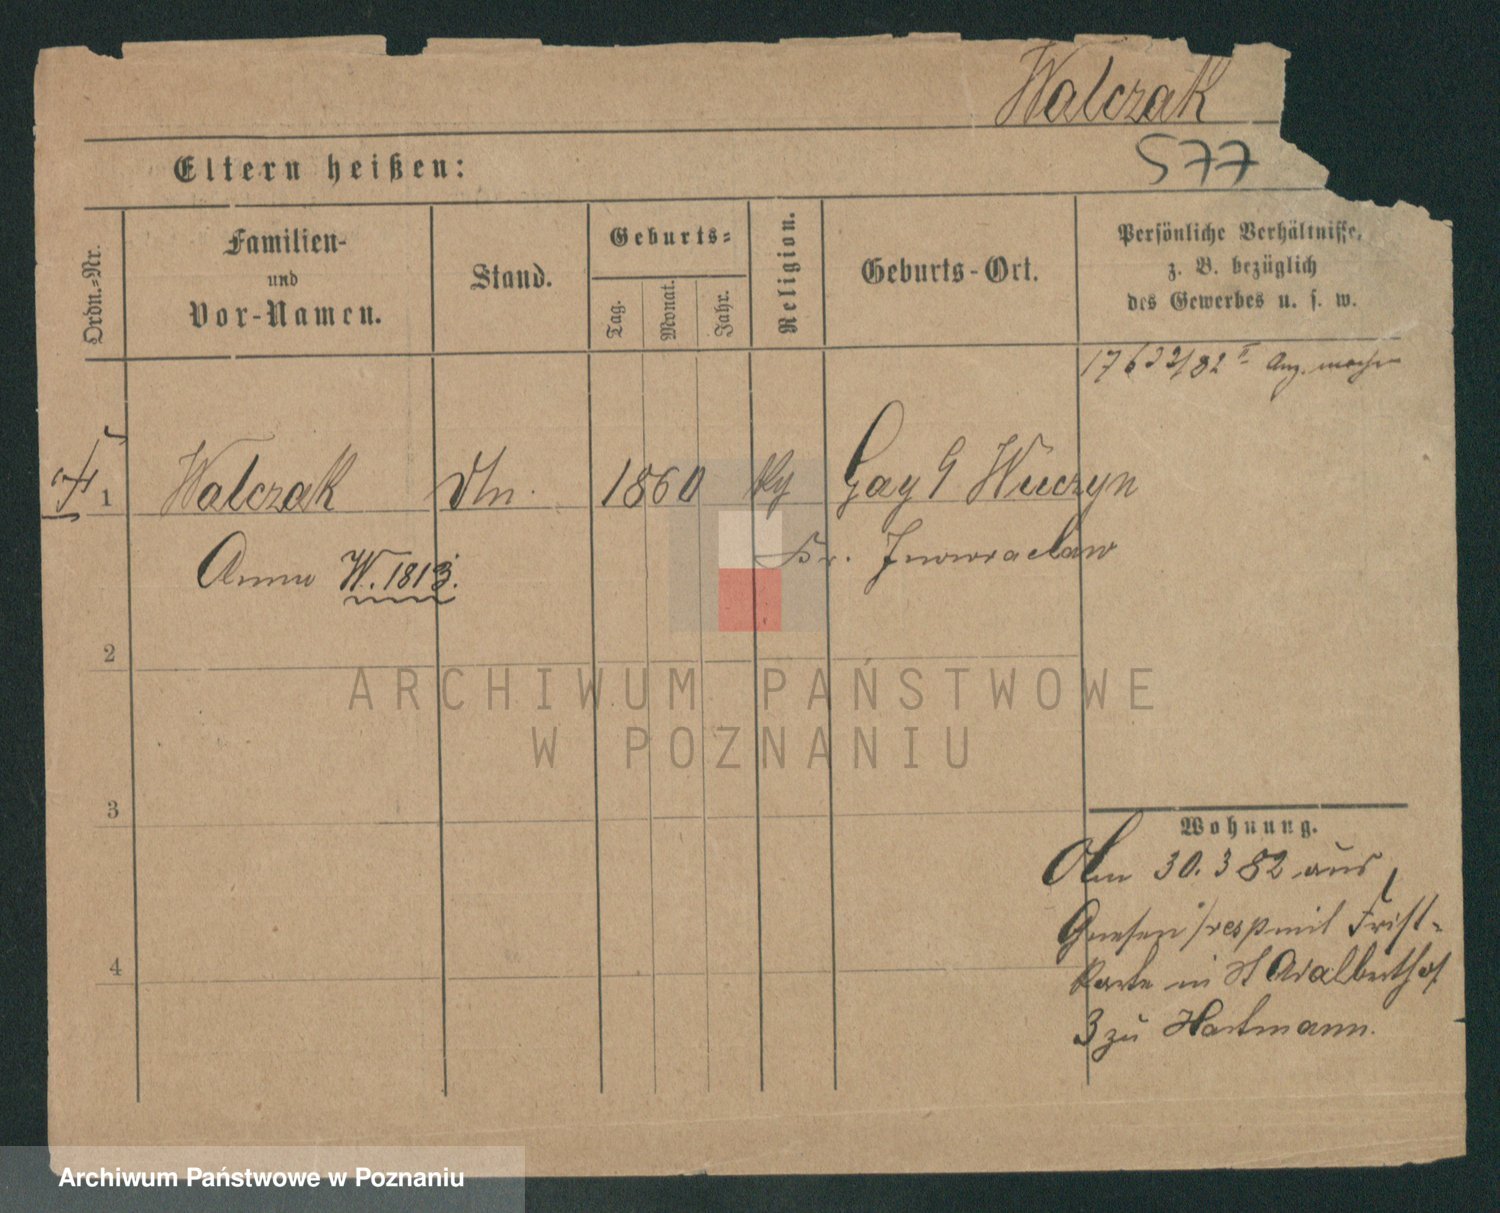 Walczak
577
Eltern heißen:
Ordn.-Nr.
Familien-
und
Vor-Namen.
Stand.
Geburts-
Tag.
Monat.
Jahr.
Religion.
Geburts-Ort.
Persönliche Verhältnisse,
z. B. bezüglich
des Gewerbes u. s. w.
17633/82 II Anz.
1 Walczak 1860 Wuczyn
Anna W. 1813. Kr. Inowraclaw
2
3
4
ARCHIWUM PAŃSTWOWE
W POZNANIU
Wohnung.
Am 30.3 82 aus
Gnesen resp mit Frist-
karte in St Adalberthof
3 zu Hartmann.
Archiwum Państwowe w Poznaniu